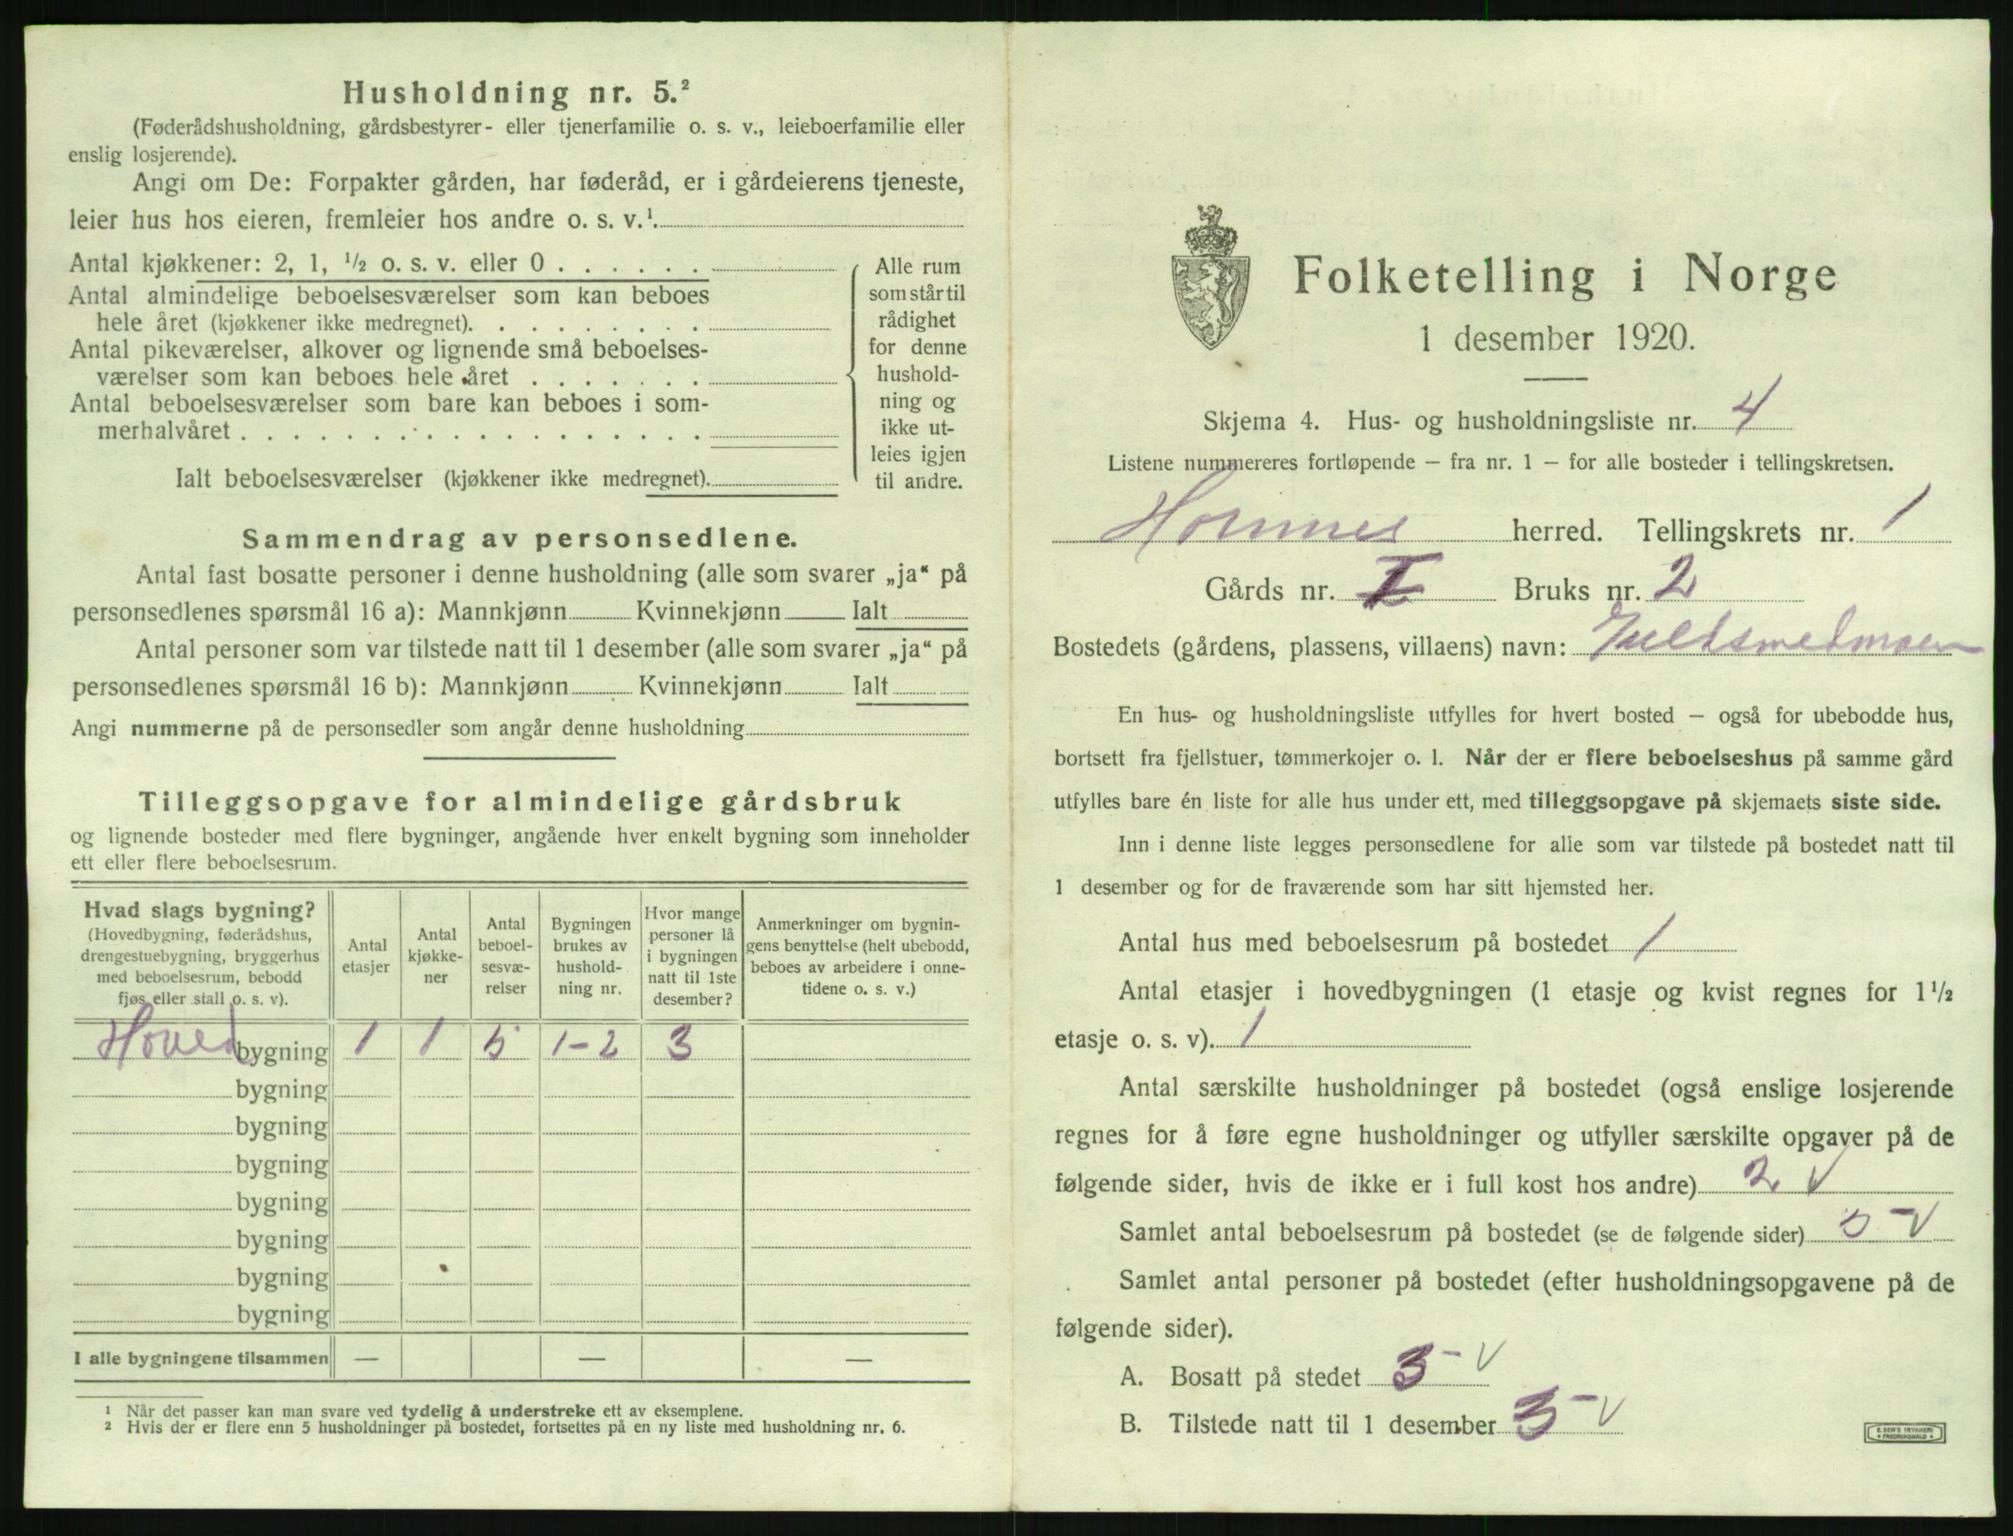 Husholdning nr. 5.²
(Føderådshusholdning, gårdsbestyrer- eller tjenerfamilie o. s. v., leieboerfamilie eller
enslig losjerende).
Angi om De: Forpakter gården, har føderåd, er i gårdeierens tjeneste,
leier hus hos eieren, fremleier hos andre o. s. v.¹.
Antal kjøkkener: 2, 1, ¹/₂ o. s. v. eller 0 . . . . . .
Antal almindelige beboelsesværelser som kan beboes
hele året (kjøkkener ikke medregnet). . . . . . . . .
Antal pikeværelser, alkover og lignende små beboelses-
værelser som kan beboes hele året . . . . . . .
Antal beboelsesværelser som bare kan beboes i som-
merhalvåret . . . . . . . . . . . . . . . . . .
Ialt beboelsesværelser (kjøkkener ikke medregnet).
Alle rum
som står til
rådighet
for denne
hushold-
ning og
ikke ut-
leies igjen
til andre.
Sammendrag av personsedlene.
Antal fast bosatte personer i denne husholdning (alle som svarer „ja“ på
personsedlenes spørsmål 16 a): Mannkjønn Kvinnekjønn Ialt
Antal personer som var tilstede natt til 1 desember (alle som svarer „ja“ på
personsedlenes spørsmål 16 b): Mannkjønn Kvinnekjønn Ialt
Angi nummerne på de personsedler som angår denne husholdning
Tilleggsopgave for almindelige gårdsbruk
og lignende bosteder med flere bygninger, angående hver enkelt bygning som inneholder
ett eller flere beboelsesrum.
Hvad slags bygning?
(Hovedbygning, føderådshus,
drengestuebygning, bryggerhus
med beboelsesrum, bebodd
fjøs eller stall o. s. v).
Antal
etasjer
Antal
kjøkke-
ner
Antal
beboel-
sesvæ-
relser
Bygningen
brukes av
hushold-
ning nr.
Hvor mange
personer lå
i bygningen
natt til 1ste
desember?
Anmerkninger om bygnin-
gens benyttelse (helt ubebodd,
beboes av arbeidere i onne-
tidene o. s. v.)
Hovedbygning 1 1 5 1-2 3
bygning
bygning
bygning
bygning
bygning
bygning
bygning
I alle bygningene tilsammen — — —
¹ Når det passer kan man svare ved tydelig å understreke ett av eksemplene.
² Hvis der er flere enn 5 husholdninger på bostedet, fortsettes på en ny liste med husholdning nr. 6.
Folketelling i Norge
1 desember 1920.
Skjema 4. Hus- og husholdningsliste nr. 4
Listene nummereres fortløpende – fra nr. 1 – for alle bosteder i tellingskretsen.
Hornnes herred. Tellingskrets nr. 1
Gårds nr. I Bruks nr. 2
Bostedets (gårdens, plassens, villaens) navn: Guldsmedmoen
En hus- og husholdningsliste utfylles for hvert bosted – også for ubebodde hus,
bortsett fra fjellstuer, tømmerkojer o. l. Når der er flere beboelseshus på samme gård
utfylles bare én liste for alle hus under ett, med tilleggsopgave på skjemaets siste side.
Inn i denne liste legges personsedlene for alle som var tilstede på bostedet natt til
1 desember og for de fraværende som har sitt hjemsted her.
Antal hus med beboelsesrum på bostedet 1
Antal etasjer i hovedbygningen (1 etasje og kvist regnes for 1¹/₂
etasje o. s. v). 1
Antal særskilte husholdninger på bostedet (også enslige losjerende
regnes for å føre egne husholdninger og utfyller særskilte opgaver på de
følgende sider, hvis de ikke er i full kost hos andre) 2 V
Samlet antal beboelsesrum på bostedet (se de følgende sider) 5 - V
Samlet antal personer på bostedet (efter husholdningsopgavene på de
følgende sider).
A. Bosatt på stedet 3 - V
B. Tilstede natt til 1 desember 3 - V
E. SEM'S TRYKKERI
FREDRIKSHALD